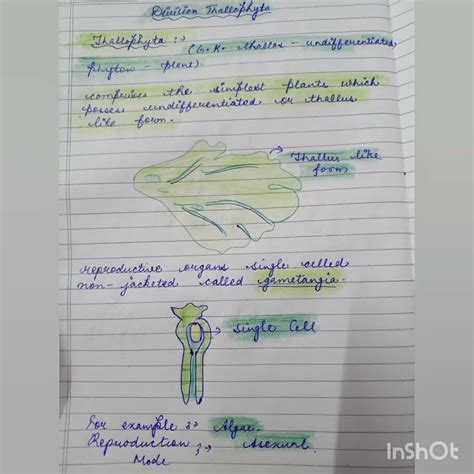 Division Thallophyta
Thallophyta :→
(G.K. thallos - undifferentiated
phyton - plant).
comprises the simplest plants which
posses undifferentiated or thallus
like form.
Thallus like
form
reproductive organs single celled
non-jacketed called gametangia.
Single Cell
For example :→ Algae.
Reproduction :→ Asexual
Mode
InShOt